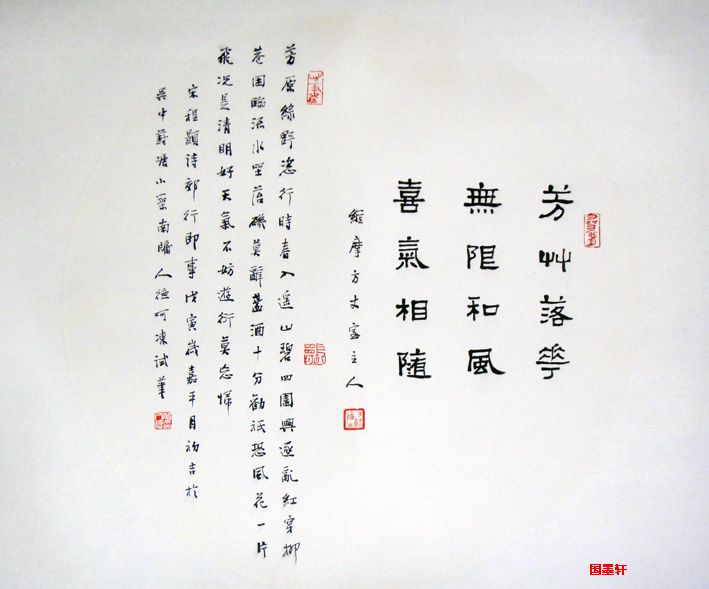 芳艸落華
無阻和風
喜氣相隨
維摩方丈室主人
芳原綠野恣行時春入遥山碧四圍興逐亂紅穿柳
巷困臨流水坐苔磯莫辭盞酒十分勸祇恐風花一片
飛況是清明好天氣不妨遊衍莫忘歸
宋程顥诗郊行即事戊寅歲嘉平月初吉於
吴中葑塘小築南牖人德呵凍試筆
国墨轩